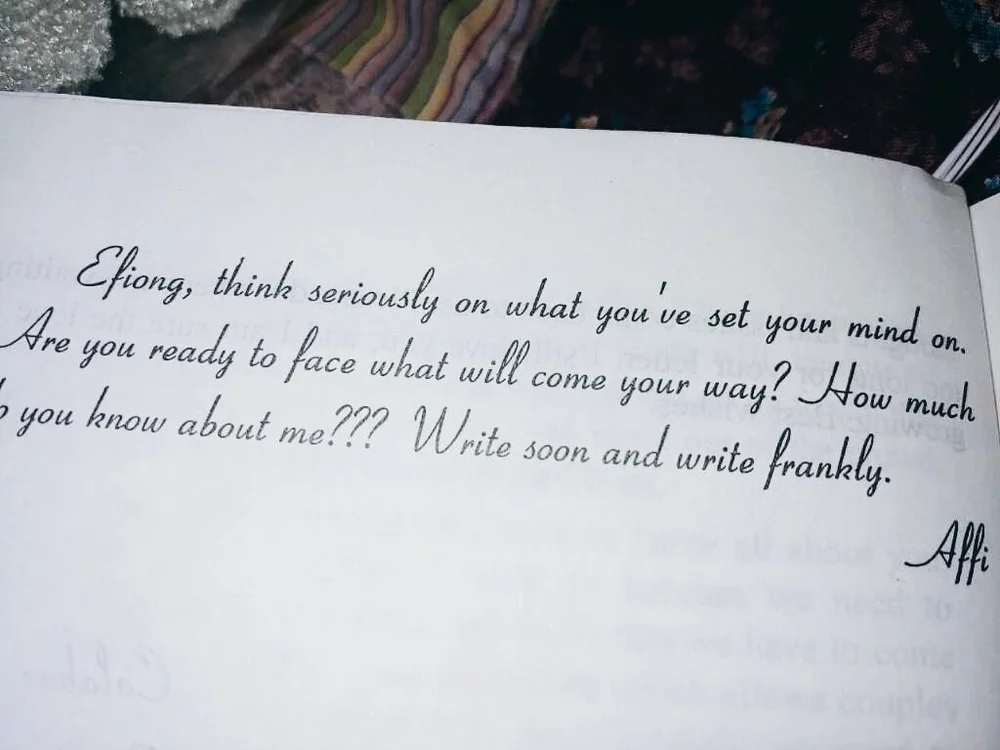 Efiong, think seriously on what you've set your mind on.
Are you ready to face what will come your way? How much
you know about me??? Write soon and write frankly.
Affi